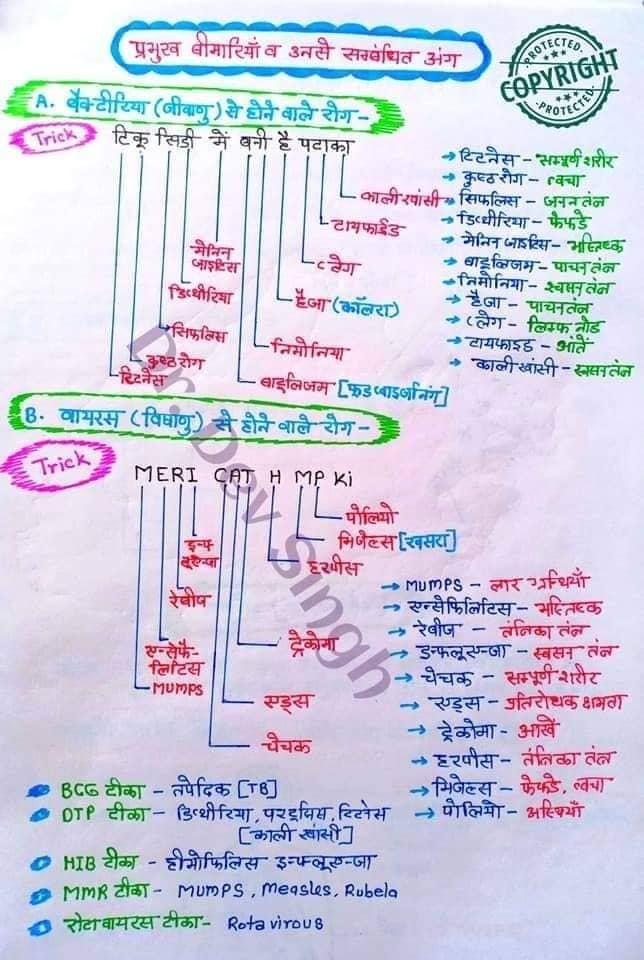 प्रमुख बीमारियाँ व उनसे सम्बंधित अंग
PROTECTED
COPYRIGHT
PROTECTED
A. बैक्टीरिया (जीवाणु) से होने वाले रोग-
Trick
टिकू सिडी में बनी है पटाका
कालीखांसी
टायफाईड
प्लेग
हैजा (कॉलरा)
निमोनिया
बाटूलिजम [फूड प्वाइजनिंग]
मेनिन
जाइटिस
डिप्थीरिया
सिफलिस
कुष्ठ रोग
टिटनेस
→ टिटनेस - सम्पूर्ण शरीर
→ कुष्ठ रोग - त्वचा
→ सिफलिस - जनन तंत्र
→ डिप्थीरिया - फेफडे
→ मेनिन जाइटिस - मष्तिष्क
→ बाटूलिजम - पाचन तंत्र
→ निमोनिया - श्वसन तंत्र
→ हैजा - पाचन तंत्र
→ प्लेग - लिम्फ नोड
→ टायफाइड - आंतें
→ काली खांसी - श्वसन तंत्र
B. वायरस (विषाणु) से होने वाले रोग-
Trick
MERI CAT H MP Ki
पोलियो
मिजेल्स [खसरा]
हरपीस
ट्रेकोमा
एड्स
चेचक
इन्फ
लूएन्जा
रेबीज
एन्सेफै-
लिटिस
MUMPS
→ MUMPS - लार ग्रथियाँ
→ एन्सेफिलिटिस - मष्तिष्क
→ रेबीज - तंत्रिका तंत्र
→ इन्फ्लूएन्जा - श्वसन तंत्र
→ चेचक - सम्पूर्ण शरीर
→ एड्स - प्रतिरोधक क्षमता
→ ट्रेकोमा - आखें
→ हरपीस - तंत्रिका तंत्र
→ मिजेल्स - फेफडे, त्वचा
→ पोलियो - अस्थियाँ
BCG टीका - तपेदिक [TB]
DTP टीका - डिप्थीरिया, परटुसिस, टिटनेस
[काली खांसी]
HIB टीका - हीमोफिलिस इन्फ्लूएन्जा
MMR टीका - MUMPS, Measles, Rubela
रोटा वायरस टीका - Rota virous
Dr. Dev Singh